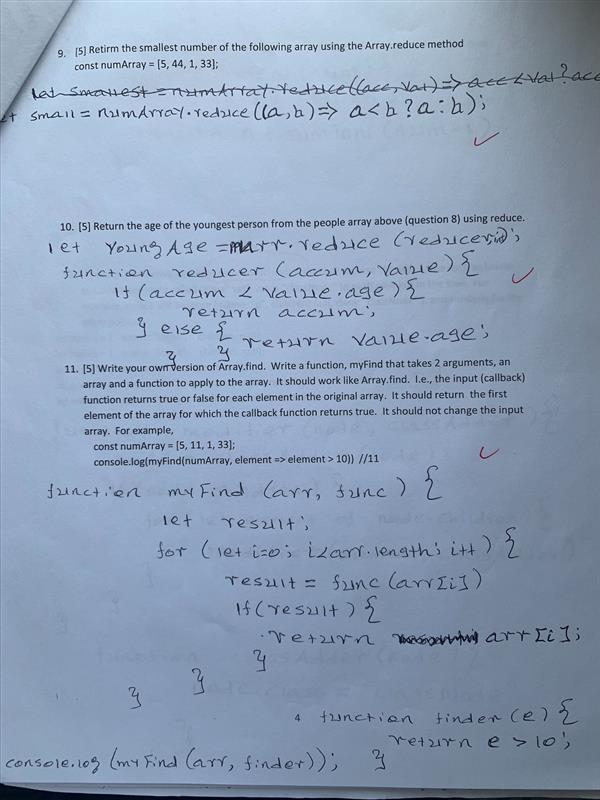 9. [5] Retirm the smallest number of the following array using the Array.reduce method
const numArray = [5, 44, 1, 33];
let smallest = numArray.reduce((acc, val) => acc < val ? acc
small = numArray.reduce((a,b) => a<b ? a : b);
10. [5] Return the age of the youngest person from the people array above (question 8) using reduce.
let youngAge = arr.reduce (reducer);
function reducer (accum, value) {
If (accum < value.age) {
return accum;
} else {
return value.age;
} }
11. [5] Write your own version of Array.find. Write a function, myFind that takes 2 arguments, an
array and a function to apply to the array. It should work like Array.find. I.e., the input (callback)
function returns true or false for each element in the original array. It should return the first
element of the array for which the callback function returns true. It should not change the input
array. For example,
const numArray = [5, 11, 1, 33];
console.log(myFind(numArray, element => element > 10)) //11
function myFind (arr, func) {
let result;
for (let i=0; i<arr.length; i++) {
result = func (arr[i])
If (result) {
return arr[i];
}
}
}
4 function finder (e) {
return e > 10;
console.log (myFind (arr, finder)); }